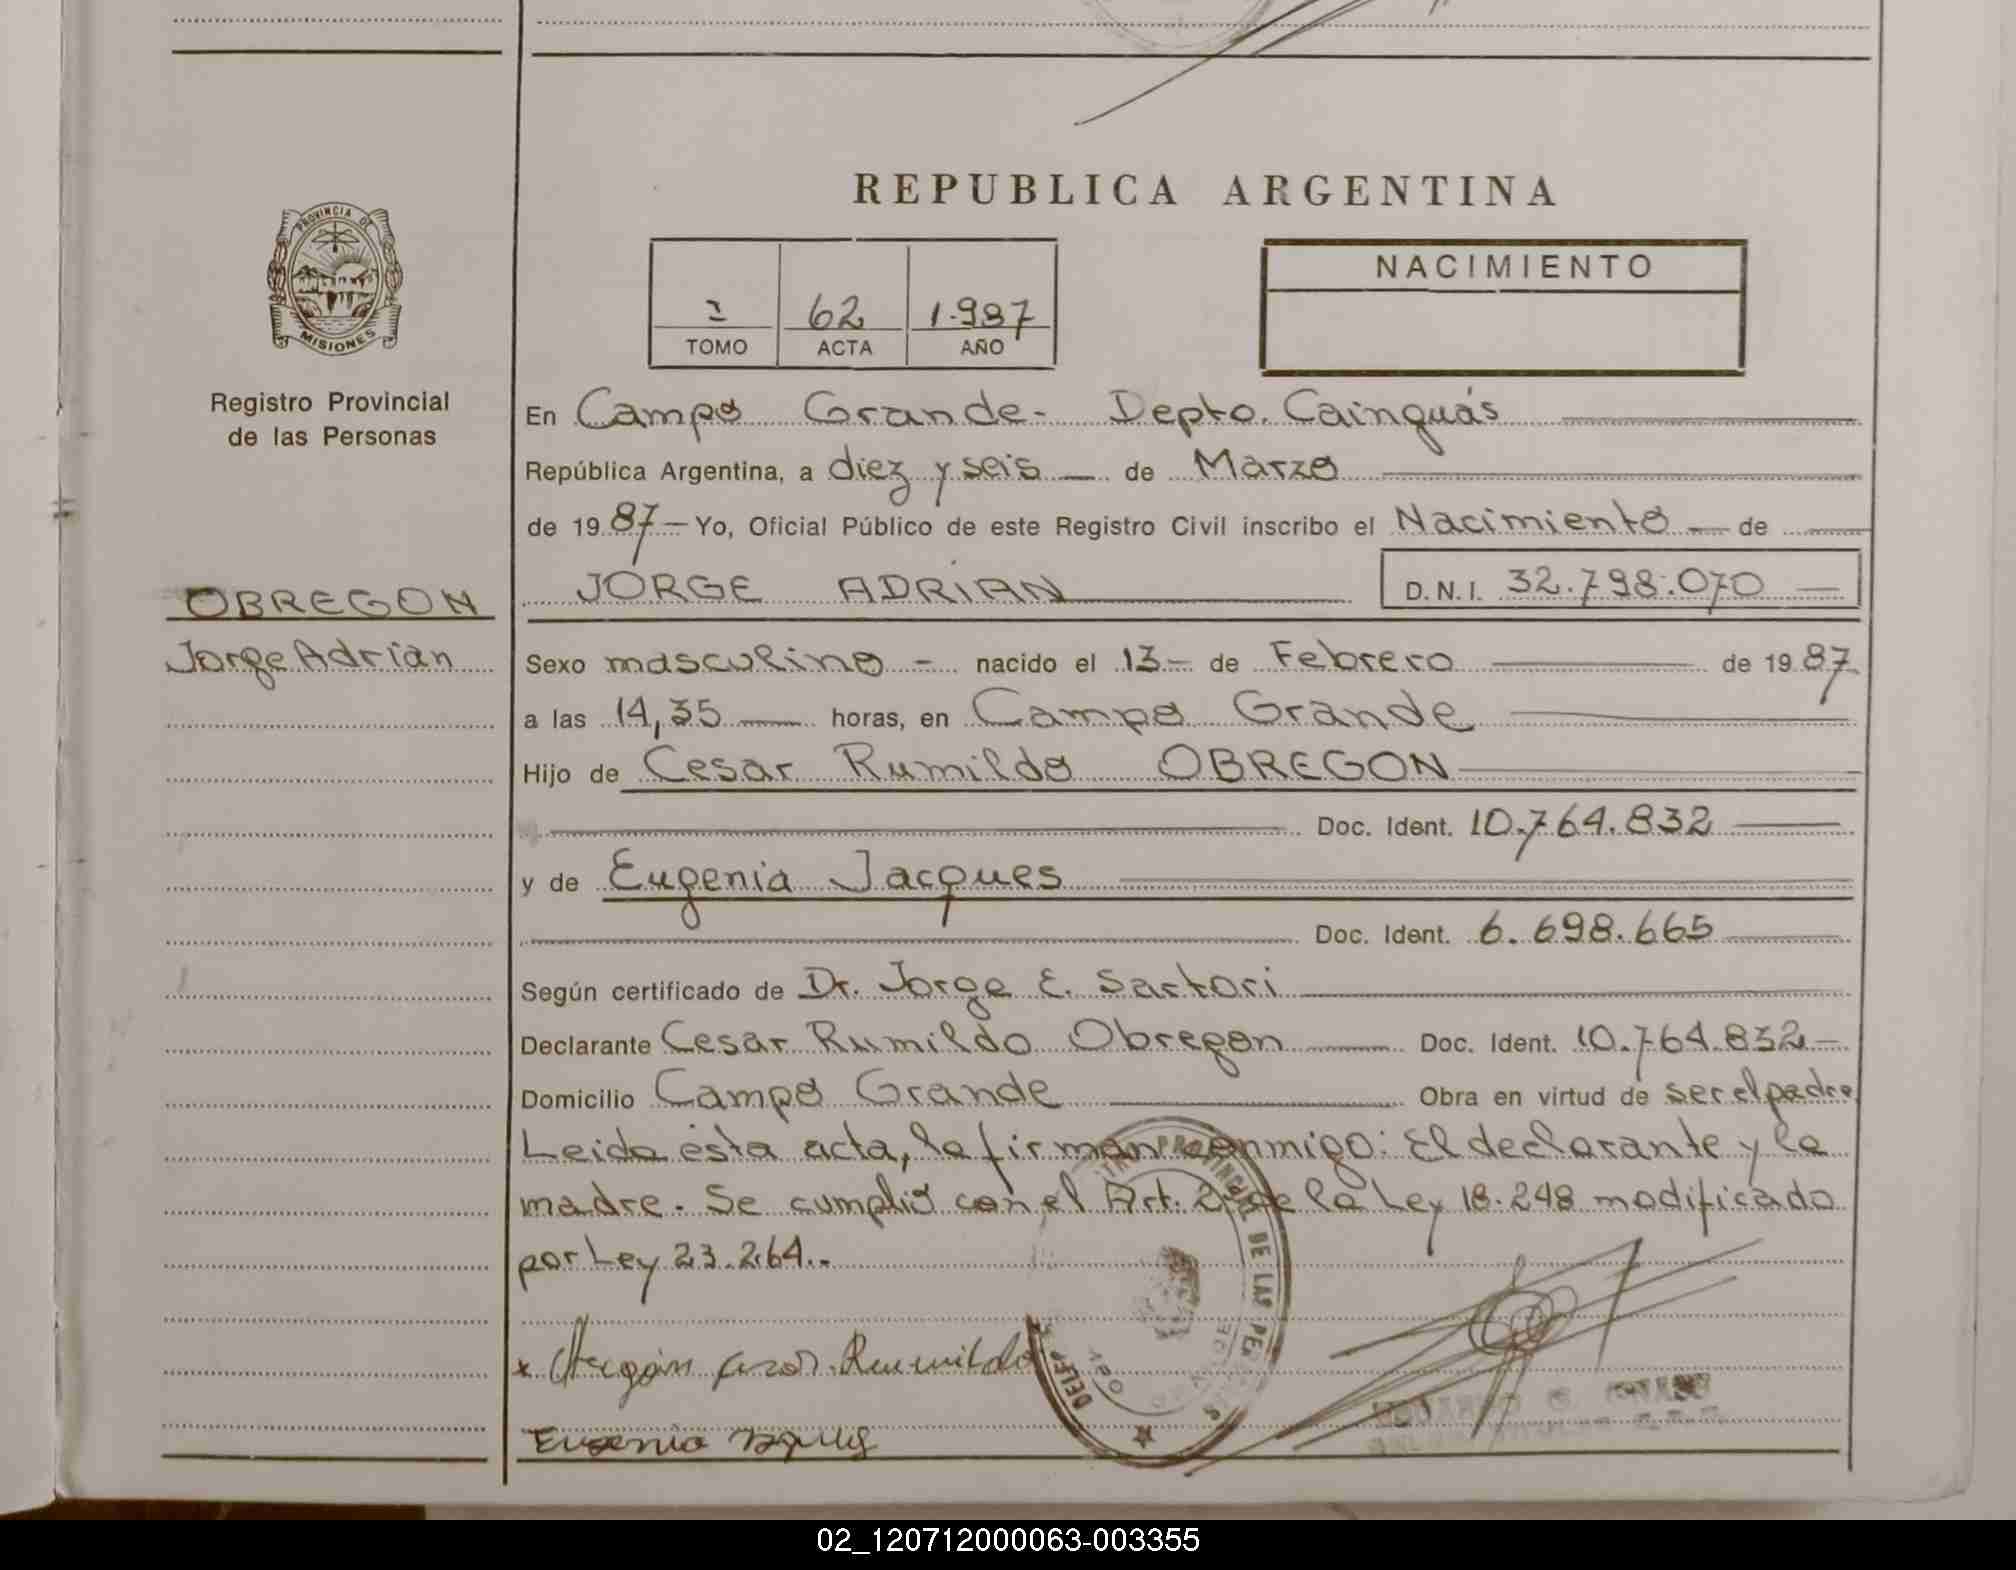 REPUBLICA ARGENTINA
PROVINCIA DE
MISIONES
Registro Provincial
de las Personas
NACIMIENTO
2 62 1.987
TOMO ACTA AÑO
En Campo Grande - Depto. Cainguás
República Argentina, a diez y seis — de Marzo
de 1987 — Yo, Oficial Público de este Registro Civil inscribo el Nacimiento — de
OBREGON
Jorge Adrián
JORGE ADRIAN D.N.I. 32.798.070 —
Sexo masculino - nacido el 13 - de Febrero de 1987
a las 14,35 — horas, en Campo Grande
Hijo de Cesar Rumildo OBREGON
Doc. Ident. 10.764.832
y de Eugenia Jacques
Doc. Ident. 6.698.665
Según certificado de Dr. Jorge E. Sartori
Declarante Cesar Rumildo Obregon Doc. Ident. 10.764.832 —
Domicilio Campo Grande Obra en virtud de ser el padre
Leida ésta acta, la firman conmigo: El declarante y la
madre. Se cumplió con el Art. 2 de la Ley 18.248 modificado
por Ley 23.264.-
DE LAS PER
Rumildo
Eugenia
02_120712000063-003355